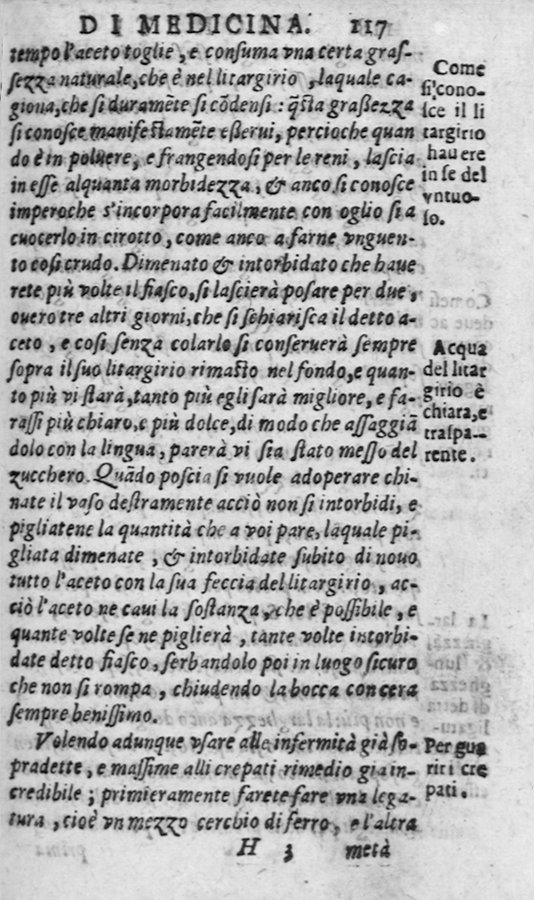 DI MEDICINA. 117
tempo l'aceto toglie, e consuma vna certa gras-
sezza naturale, che è nel litargirio, laquale ca-
giona, che si duramẽte si cõdensi: q̃sta grassezza
si conosce manifestamẽte esserui, percioche quan
do è in poluere, e frangendosi per le reni, lascia
in esse alquanta morbidezza, & anco si conosce
imperoche s'incorpora facilmente con oglio si a
cuocerlo in cirotto, come anco a farne vnguen-
to così crudo. Dimenato & intorbidato che haue
rete più volte il fiasco, si lascierà posare per due,
ouero tre altri giorni, che si schiarisca il detto a-
ceto, e così senza colarlo si conseruerà sempre
sopra il suo litargirio rimasto nel fondo, e quan-
to più vi starà, tanto più egli sarà migliore, e fa-
rassi più chiaro, e più dolce, di modo che assaggiã
dolo con la lingua, parerà vi sia stato messo del
zucchero. Quãdo poscia si vuole adoperare chi-
nate il vaso destramente acciò non si intorbidi, e
pigliatene la quantità che a voi pare, laquale pi-
gliata dimenate, & intorbidate subito di nouo
tutto l'aceto con la sua feccia del litargirio, ac-
ciò l'aceto ne caui la sostanza, che è possibile, e
quante volte se ne piglierà, tante volte intorbi-
date detto fiasco, serbandolo poi in luogo sicuro
che non si rompa, chiudendo la bocca con cera
sempre benissimo.
Volendo adunque vsare alle infermità già so-
pradette, e massime alli crepati rimedio gia in-
credibile; primieramente farete fare vna lega-
tura, cioè vn mezzo cerchio di ferro, e l'altra
H 3 metà
Come
si cono-
sce il li
targirio
hauere
in se del
vntuo-
so.
Acqua
del litar
girio è
chiara, e
traspa-
rente.
Per gua
rir i cre
pati.